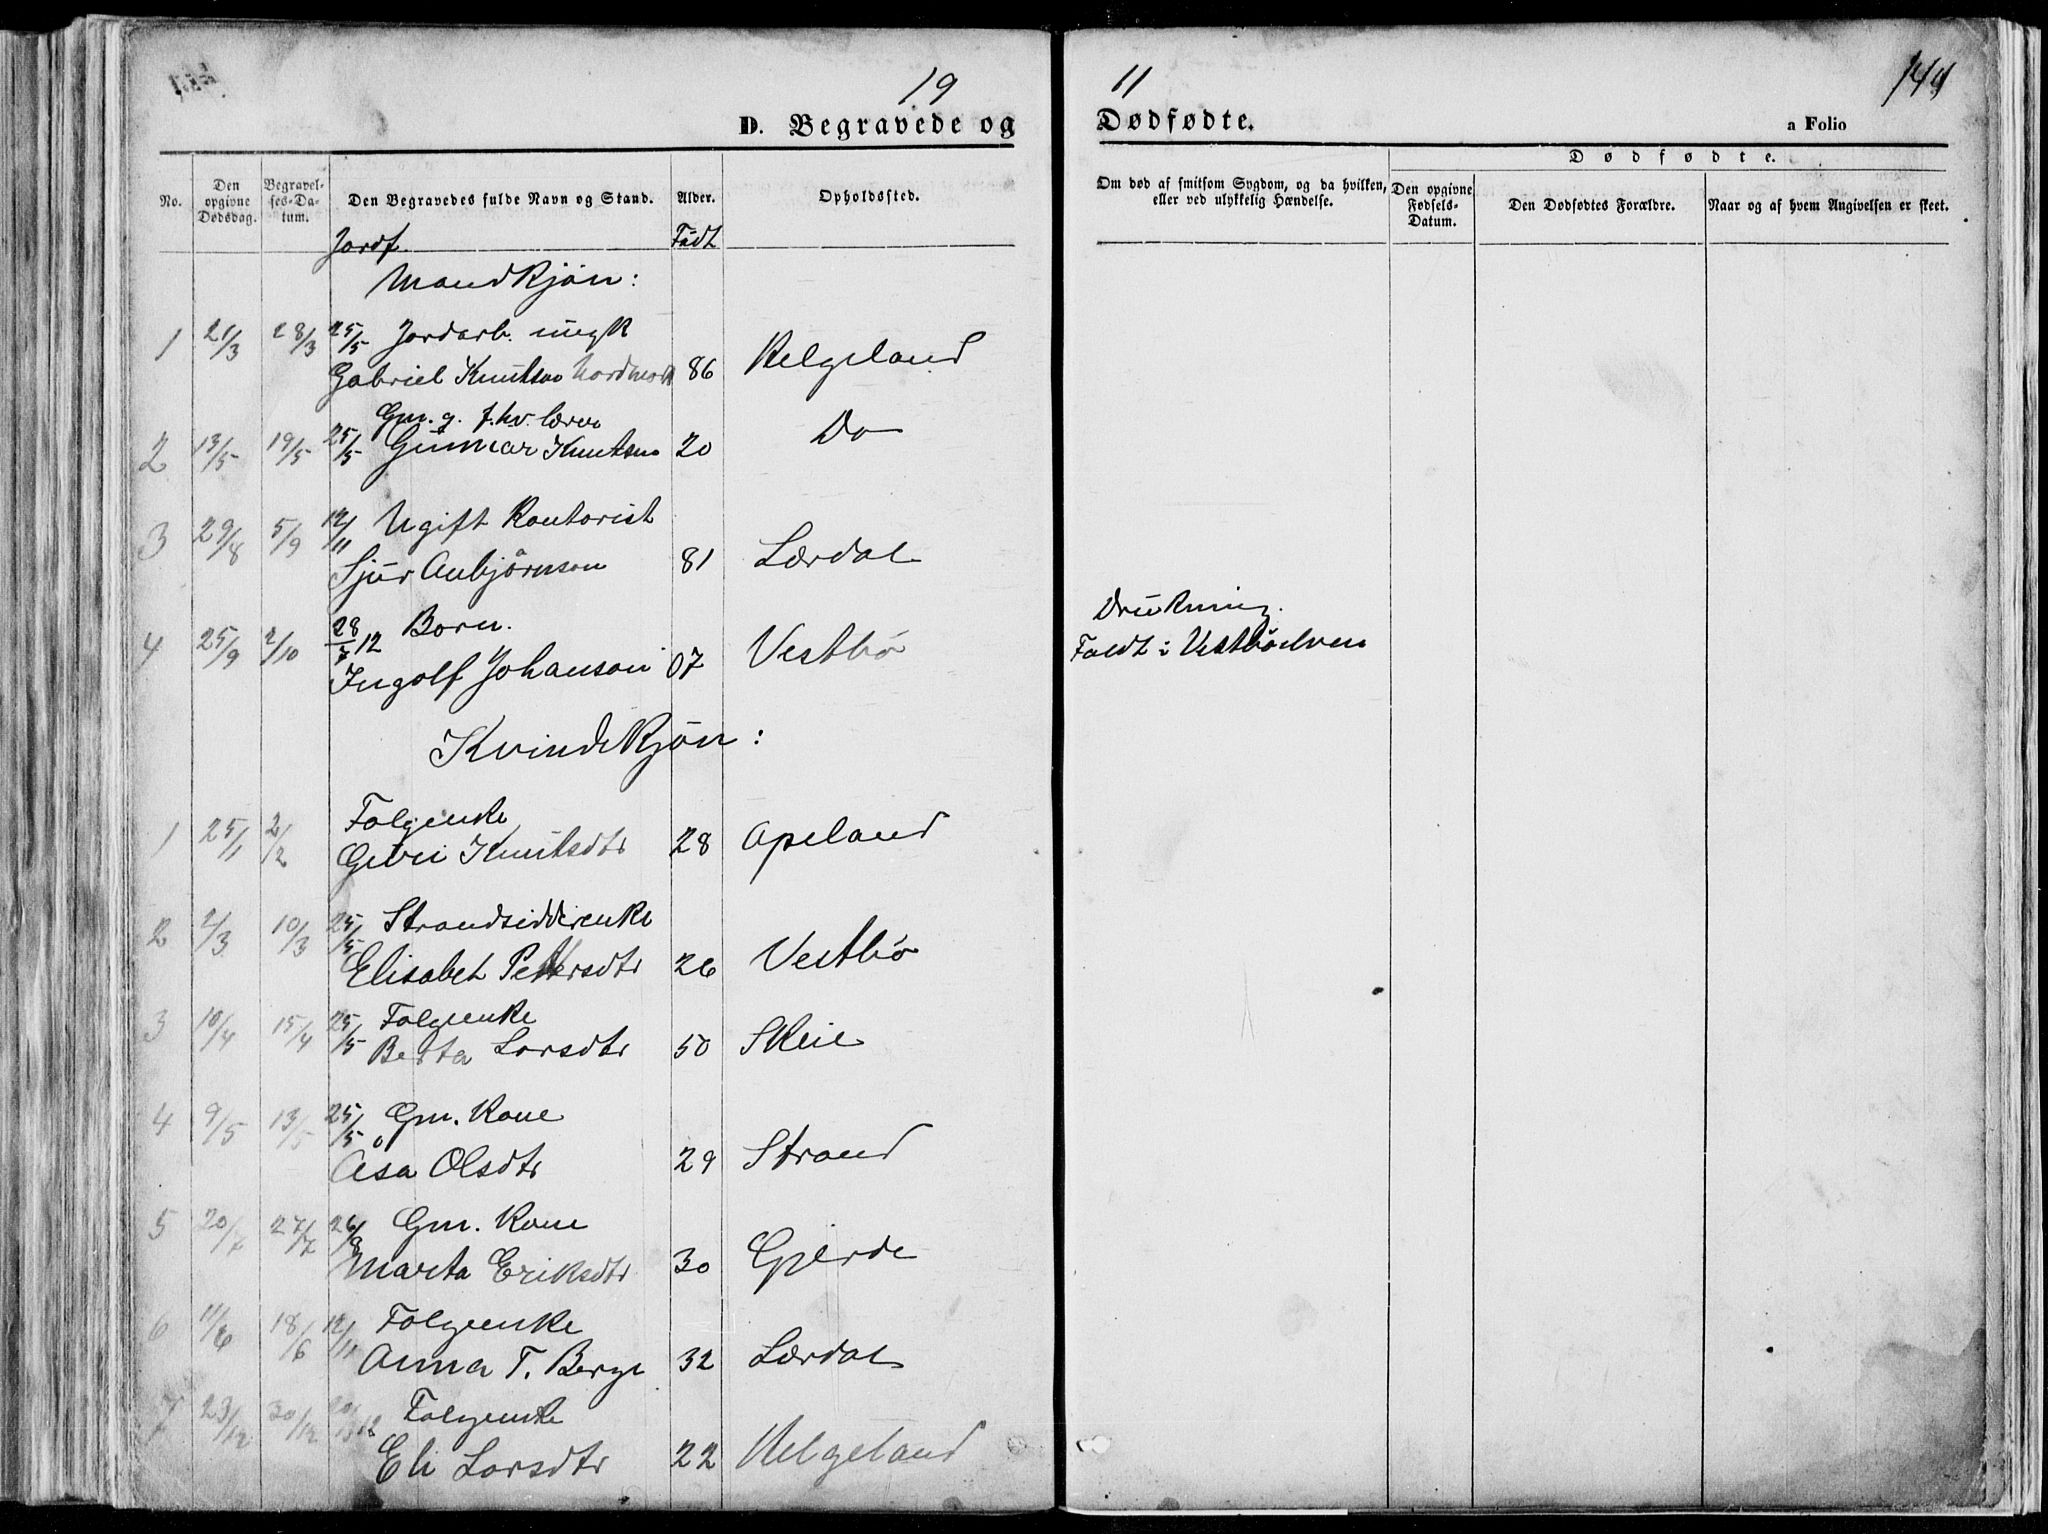 19
11
144
D. Begravede og Dødfødte.
a Folio
Dødfødte.
No.
Den opgivne Dødsdag.
Begravelses-Datum.
Den Begravedes fulde Navn og Stand.
Alder.
Opholdssted.
Om død af smitsom Sygdom, og da hvilken, eller ved ulykkelig Hændelse.
Den opgivne Fødsels-Datum.
Den Dødfødtes Forældre.
Naar og af hvem Angivelsen er skeet.
Jordf. Født
Mandkjøn:
1 21/3 28/3 25/5 Jordarb. ungk
Gabriel Knutson 86 Helgeland
Gm. g. f.hv. lærer
2 13/5 19/5 25/5 Gunnar Knutson 20 Do
3 29/8 5/9 12/11 Ugift Kontorist
Sjur Anbjørnson 81 Lærdal
4 25/9 2/10 28/7 12 Born. Drukning.
Ingolf Johanson 07 Vestbø Faldt i Vestbøelven
Kvindekjøn:
1 25/1 2/2 Folgenke
Guri Knutsdtr 28 Apeland
2 2/3 10/3 25/5 Strandsidderenke
Elisabet Pettersdtr 26 Vestbø
3 10/4 15/4 25/5 Folgenke
Berta Larsdtr 50 Skeie
4 9/5 13/5 25/5 Gm. Kone
Åsa Olsdtr 29 Strand
5 20/7 27/7 26/8 Gm. Kone
Marta Eriksdtr 30 Gjerde
6 11/6 18/6 12/11 Folgeenke
Anna T. Berge 32 Lærdal
7 23/12 30/12 Folgenke
Eli Larsdtr 22 Helgeland